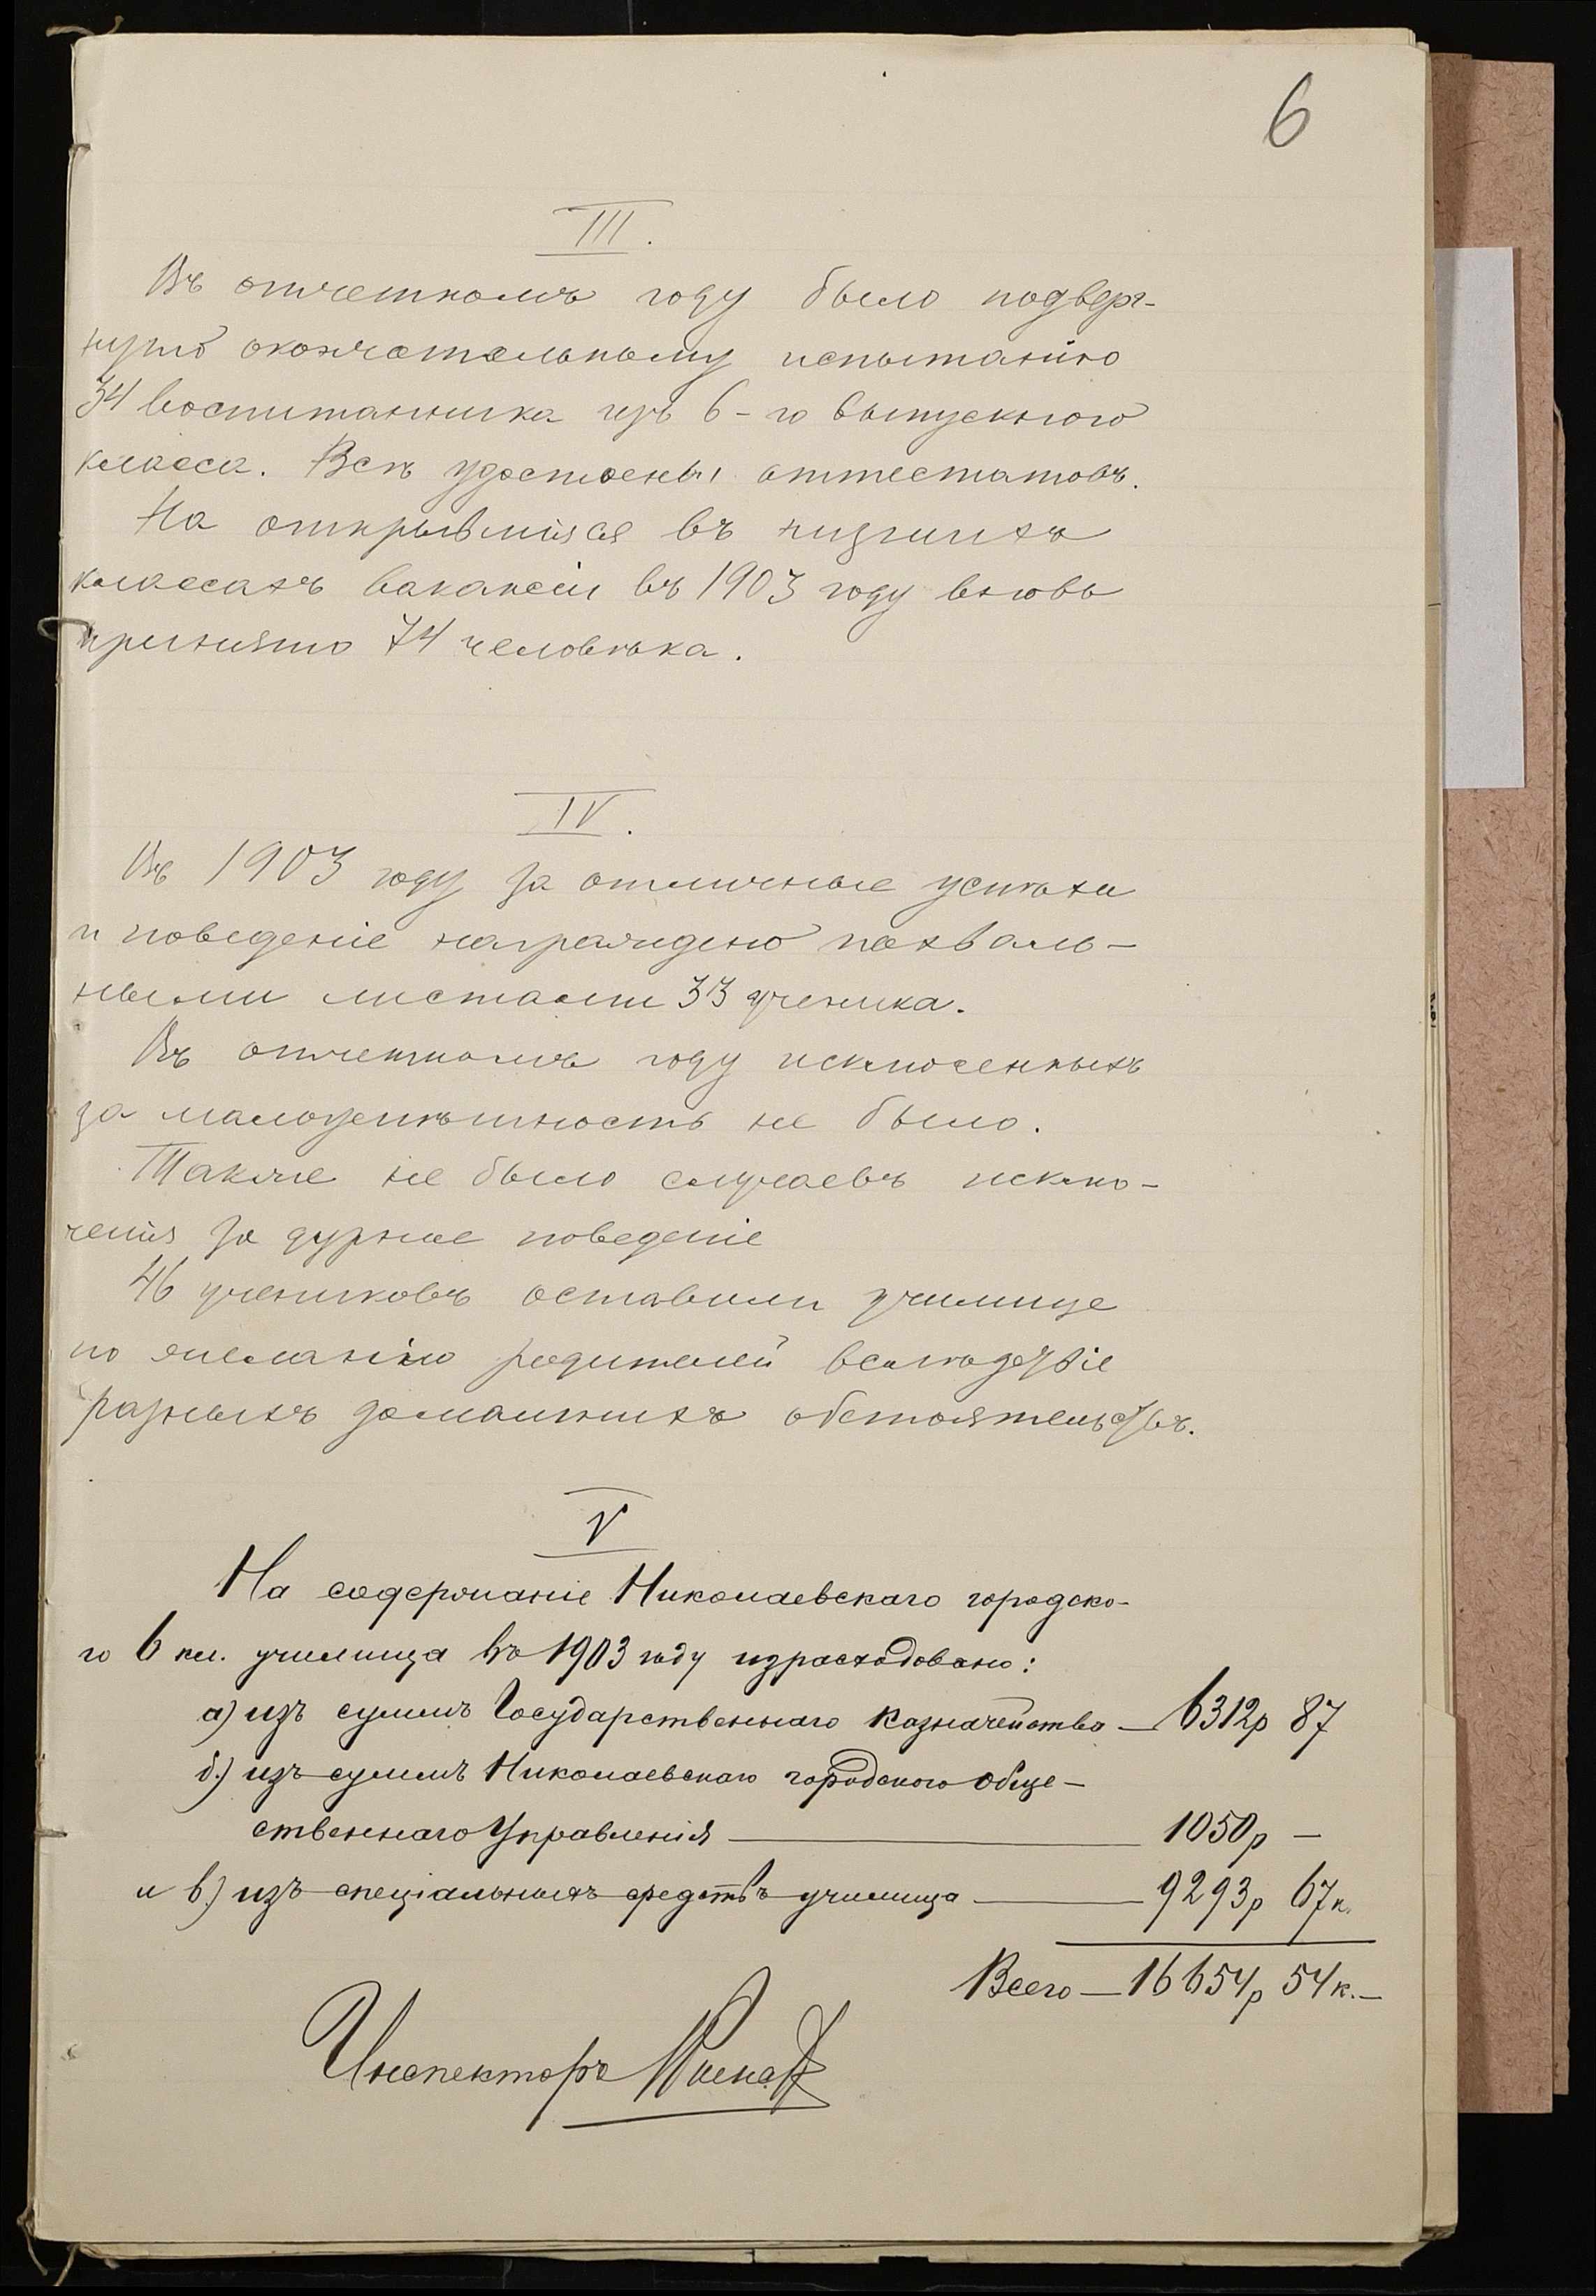 6
III.
Въ отчетномъ году было подверг-
нуто окончательному испытанію
34 воспитанника изъ 6-го выпускного
класса. Всѣ удостоены аттестатовъ.
На открывшіяся въ низшихъ
классахъ вакансіи въ 1903 году вновь
принято 74 человѣка.
IV.
Въ 1903 году за отличные успѣхи
и поведеніе награждено похваль-
ными листами 33 ученика.
Въ отчетномъ году исключенныхъ
за малоуспѣшность не было.
Также не было случаевъ исклю-
ченія за дурное поведеніе
46 учениковъ оставили училище
по желанію родителей вслѣдствіе
разныхъ домашнихъ обстоятельствъ.
V
На содержаніе Николаевскаго городско-
го 6 кл. училища въ 1903 году израсходовано:
а) изъ суммъ Государственнаго Казначейства — 6312р 87
б.) изъ суммъ Николаевскаго городского обще-
ственнаго Управленія — 1050р —
и в.) изъ спеціальныхъ средствъ училища — 9293р 67к.
Всего — 16654р 54к. —
Инспекторъ